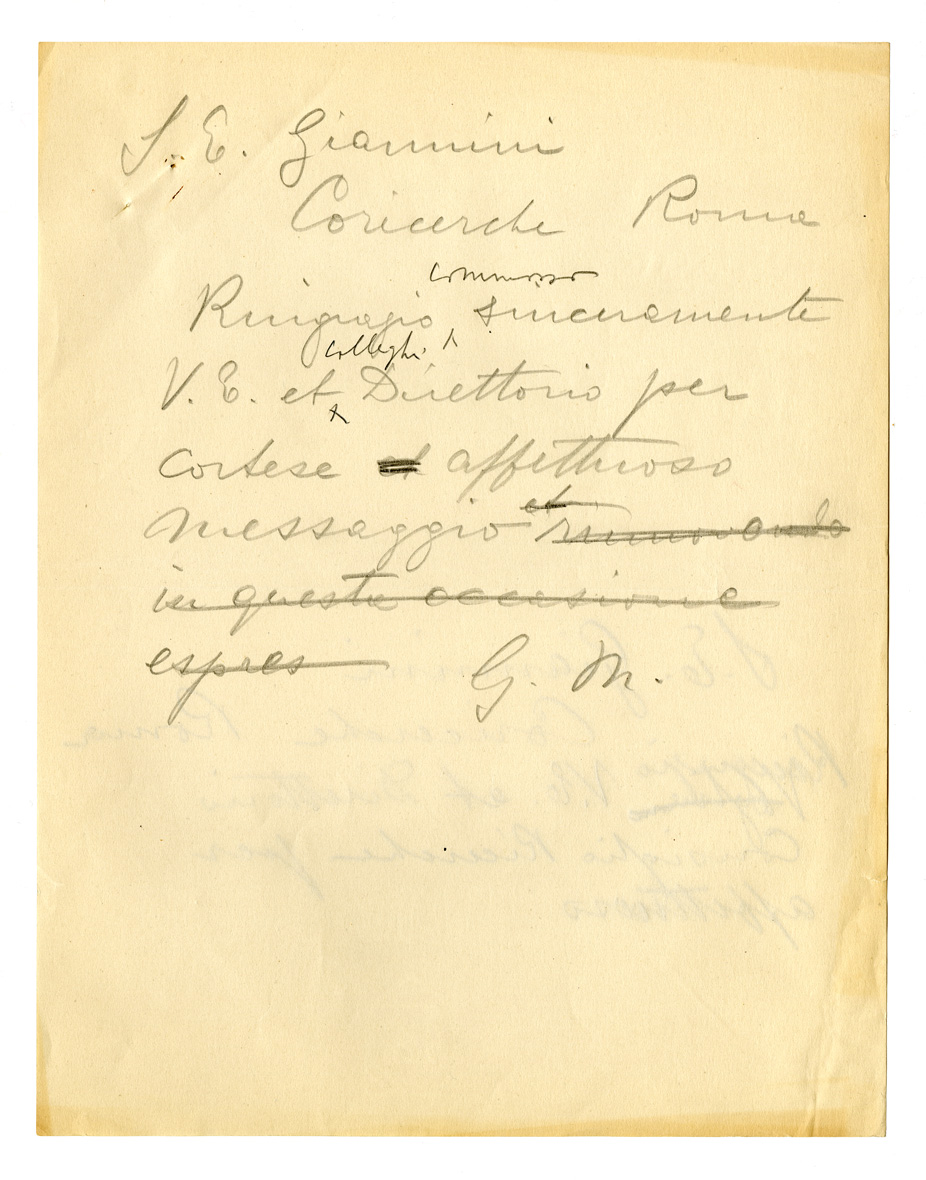 S. E. Giannini
Coricerche Roma
commosso
Ringrazio sinceramente
colleghi
V. E. et Direttorio per
cortese et affettuoso
messaggio et rinnovando
in questa occasione
espres
G. M.